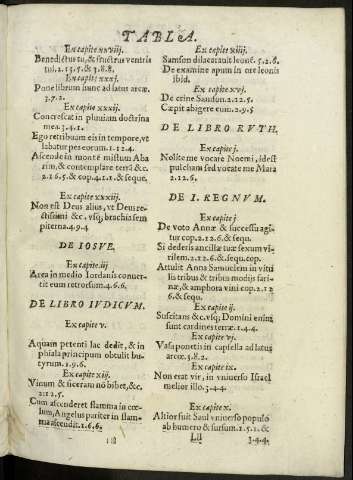 TABLA.
Ex capite xxviij.
Benedictus tu, & fructus ventris
tui. 2.13.5. & 3.8.8.
Ex capite xxxj.
Pone librum hunc ad latus arcæ.
3.7.2.
Ex capite xxxij.
Concrescat in pluuiam doctrina
mea. 3.4.1.
Ego retribuam eis in tempore, vt
labatur pes eorum. 1.12.4.
Ascende in montē mistum Aba
rim, & contemplare terrā &c.
2.16.5. & cop. 4.1.1. & seque.
Ex capite xxxiij.
Non est Deus alius, vt Deus re-
ctissimi &c. vsq; brachia sem
piterna. 4.9.4
DE IOSVE.
Ex capite .iij
Area in medio Iordanis conuer-
tit eum retrorsum. 4.6.6.
DE LIBRO IVDICVM.
Ex capite v.
Aquam petenti lac dedit, & in
phiala principum obtulit bu-
tyrum. 1.9.6.
Ex capite xiij.
Vinum & siceram nō bibet, &c.
2.12.5.
Cum ascenderet flamma in cœ-
lum, Angelus pariter in flam-
ma ascendit. 1.6.6.
Ex capite xiiij.
Samson dilacerauit leonē. 5.2.6.
De examine apum in ore leonis
ibid.
Ex capite xvj.
De crine Samson. 2.12.5.
Cœpit abigere eum. 2.9.5
DE LIBRO RVTH.
Ex capite j.
Nolite me vocare Noemi, id est
pulcham sed vocate me Mara
2.12.6.
DE I. REGNVM.
Ex capite j
De voto Annæ & successu agi
tur cop. 2.12.6. & sequ.
Si dederis ancillæ tuæ sexum vi-
rilem. 2.12.6. & sequ. cop.
Attulit Anna Samuelem in vitu
lis tribus & tribus modijs fari-
næ, & amphora vini cop. 2.12
6. & sequ.
Ex capite ij.
Suscitans &c. vsq; Domini enim
sunt cardines terræ. 1.4.4.
Ex capite vj.
Vasa ponetis in capsella ad latus
arcæ. 3.8.2.
Ex capite ix.
Non erat vir, in vniuerso Israel
melior illo. 3.4.4.
Ex capite x.
Altior fuit Saul vniuerso populo
ab humero & sursum. 1.5.1. &
Lll 3.4.4.